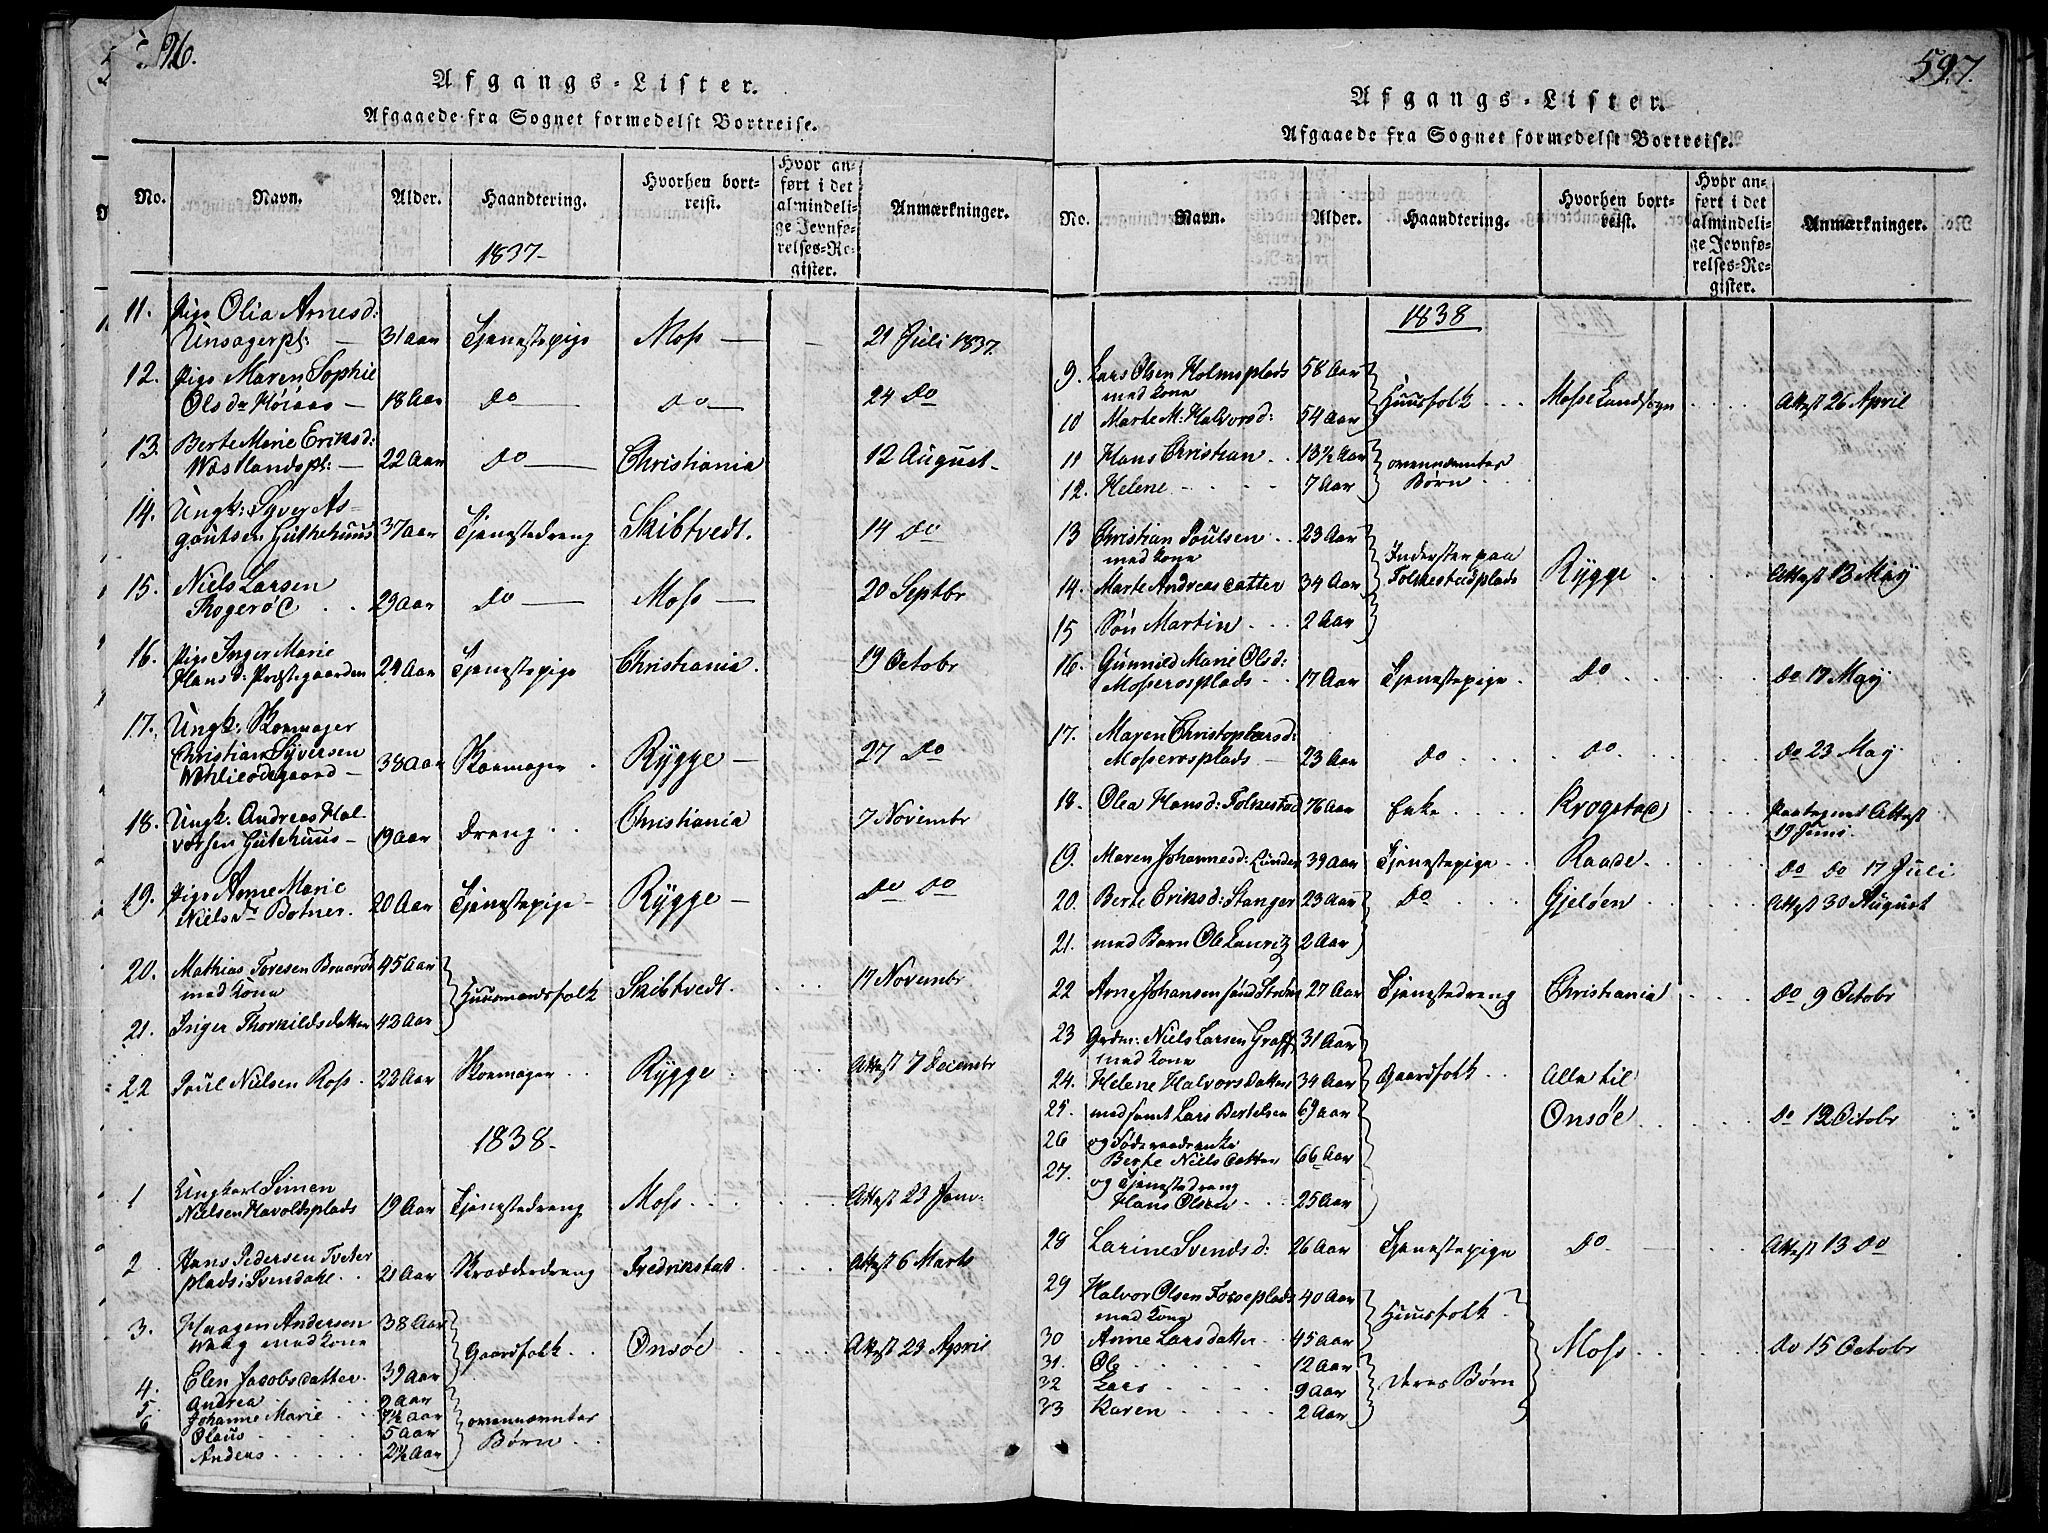 96.
Afgangs-Lister.
Afgaaede fra Sognet formedelst Bortreise.
No. Navn. Alder. Haandtering. Hvorhen bortreist. Hvor anført i det almindelige Jevnførelses-Register. Anmærkninger.
1837-
11. Pige Olia Arnesd:
Unsagerpl: — 31 Aar Tjenestepige Moss — 21 Juli 1837.
12. Pige Maren Sophie
Olsdr — 18 Aar Do — Do — 24 Do
13. Berte Marie Eriksd:
Westlandspl: — 22 Aar Do — Christiania 12 August -
14. Ungk: Syver As-
goutsen Huthehuus 37 Aar Tjenestedreng Skibtvedt. 14 Do
15. Niels Larsen
29 Aar Do — Moss — 20 Septbr
16. Pige Inger Marie
Hans d: Præstegaarden 24 Aar Tjenestepige Christiania. 19 Octobr
17. Ungk: Skomager
Christian Syversen
38 Aar Skomager . Rygge — 27 Do
18. Ungk. Andreas Hal-
vorsen Huthehuus — 19 Aar Dreng . . Christiania 7 Novembr
19. Pige Anne Marie
Niels dr Botner. 20 Aar Tjenestepige - Rygge — Do Do
20. Mathias Toresen Braarød 45 Aar
med Kone Huusmandsfolk Skibtvedt. 17 Novembr
21. Inger Thorkildsdatter 42 Aar
22 Poul Nielsen Ross . 22 Aar Skomager . . Rygge . Attest 7 Decembr
1838-
1 Ungkarl Simen
Nielsen Haroldsplads 19 Aar Tjenestedreng Moss . . . Attest 23 Janv.
2 . Hans Pedersen Tveter
plads i Svendahl . . 21 Aar Skrædderdreng Fredrikstad . Attest 6 Marts
3. Haagen Andersen 38 Aar
med Kone Gaardfolk . . Onsøe Attest 23 April
4. Elen Jacobsdatter . 39 Aar
5. Andrea . . 9 Aar
6 Johanne Marie . . 7½ Aar ovennævntes
Olaus . . . . 5 Aar Børn . .
Anders . . . . 2½ Aar
597.
Afgangs-Lister.
Afgaaede fra Sognet formedelst Bortreise.
No. Navn. Alder. Haandtering. Hvorhen bortreist. Hvor anført i det almindelige Jevnførelses-Register. Anmærkninger.
1838
9. Lars Olsen Holmsplads 58 Aar
med Kone Huusfolk . . . Mosse Landsogn Attest 26 April
10 Marte M: Halvorsd: 54 Aar
11 Hans Christian . . 13½ Aar ovennævntes
12. Helene - . . . 7 Aar Børn . . .
13 Christian Poulsen . . 23 Aar
med Kone Inderster paa
14. Marte Andreasdatter 34 Aar Folkestadplads Rygge . . Attest 13 May
15 Søn Martin . . . 2 Aar
16. Gunnild Marie Olsd:
Mosserosplads . . 17 Aar Tjenestepige . Do . . . Do 17 May
17. Maren Christophersd:
Mosserosplads — 23 Aar Do . . . Do . . Do 23 May
18. Olea Hansd: Folkestad 76 Aar Enke . . . Krogstad Paategnet Attest
19 Juni.
19. Maren Johannesd: Lunder 39 Aar Tjenestepige . . Raade . Do Do 17 Juli
20. Berte Eriksd: Stanger 23 Aar Do . . . Gjeløen . Attest 30 August
21. med Barn Ole Lauritz 2 Aar
22 Arne Johansen 27 Aar Tjenestedreng Christiania . . . Do 9 Octobr
23 Grdm: Niels Larsen 31 Aar
med Kone
24. Helene Halvorsdatter 34 Aar Gaardfolk . . Alle til
25. med samt Lars Bertelsen 69 Aar Onsøe . . . Do 12 Octobr
26 og Føderaadsenke
Berte Nielsdatter 66 Aar
27. og Tjenestedreng
Hans Olsen . . 25 Aar
28 Larine Svendsd: 26 Aar Tjenestepige Do . . Attest 13 Do
29 Halvor Olsen 40 Aar
med Kone Huusfolk .
30 Anne Larsdatter . . 45 Aar Moss . . . Do 15 Octobr
31. Ole . . . . 12 Aar
32 Lars . . . . 9 Aar deres Børn
33 Karen . . . . 2 Aar